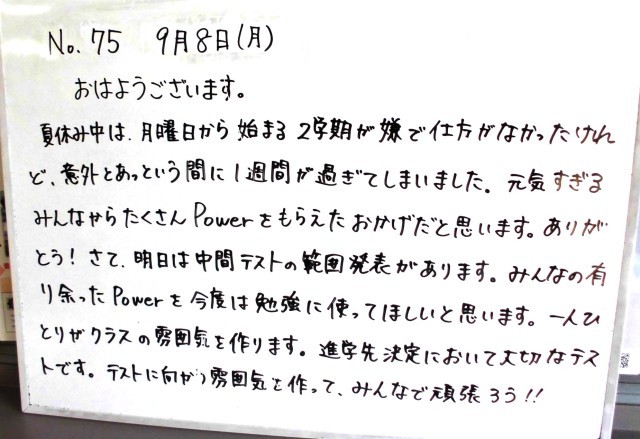 No. 75 9月8日(月)
おはようございます。
夏休み中は、月曜日から始まる2学期が嫌で仕方がなかったけれ
ど、意外とあっという間に1週間が過ぎてしまいました。元気すぎる
みんなからたくさんPowerをもらえたおかげだと思います。ありが
とう!さて、明日は中間テストの範囲発表があります。みんなの有
り余ったPowerを今度は勉強に使ってほしいと思います。一人ひ
とりがクラスの雰囲気を作ります。進学先決定において大切なテス
トです。テストに向かう雰囲気を作って、みんなで頑張ろう!!